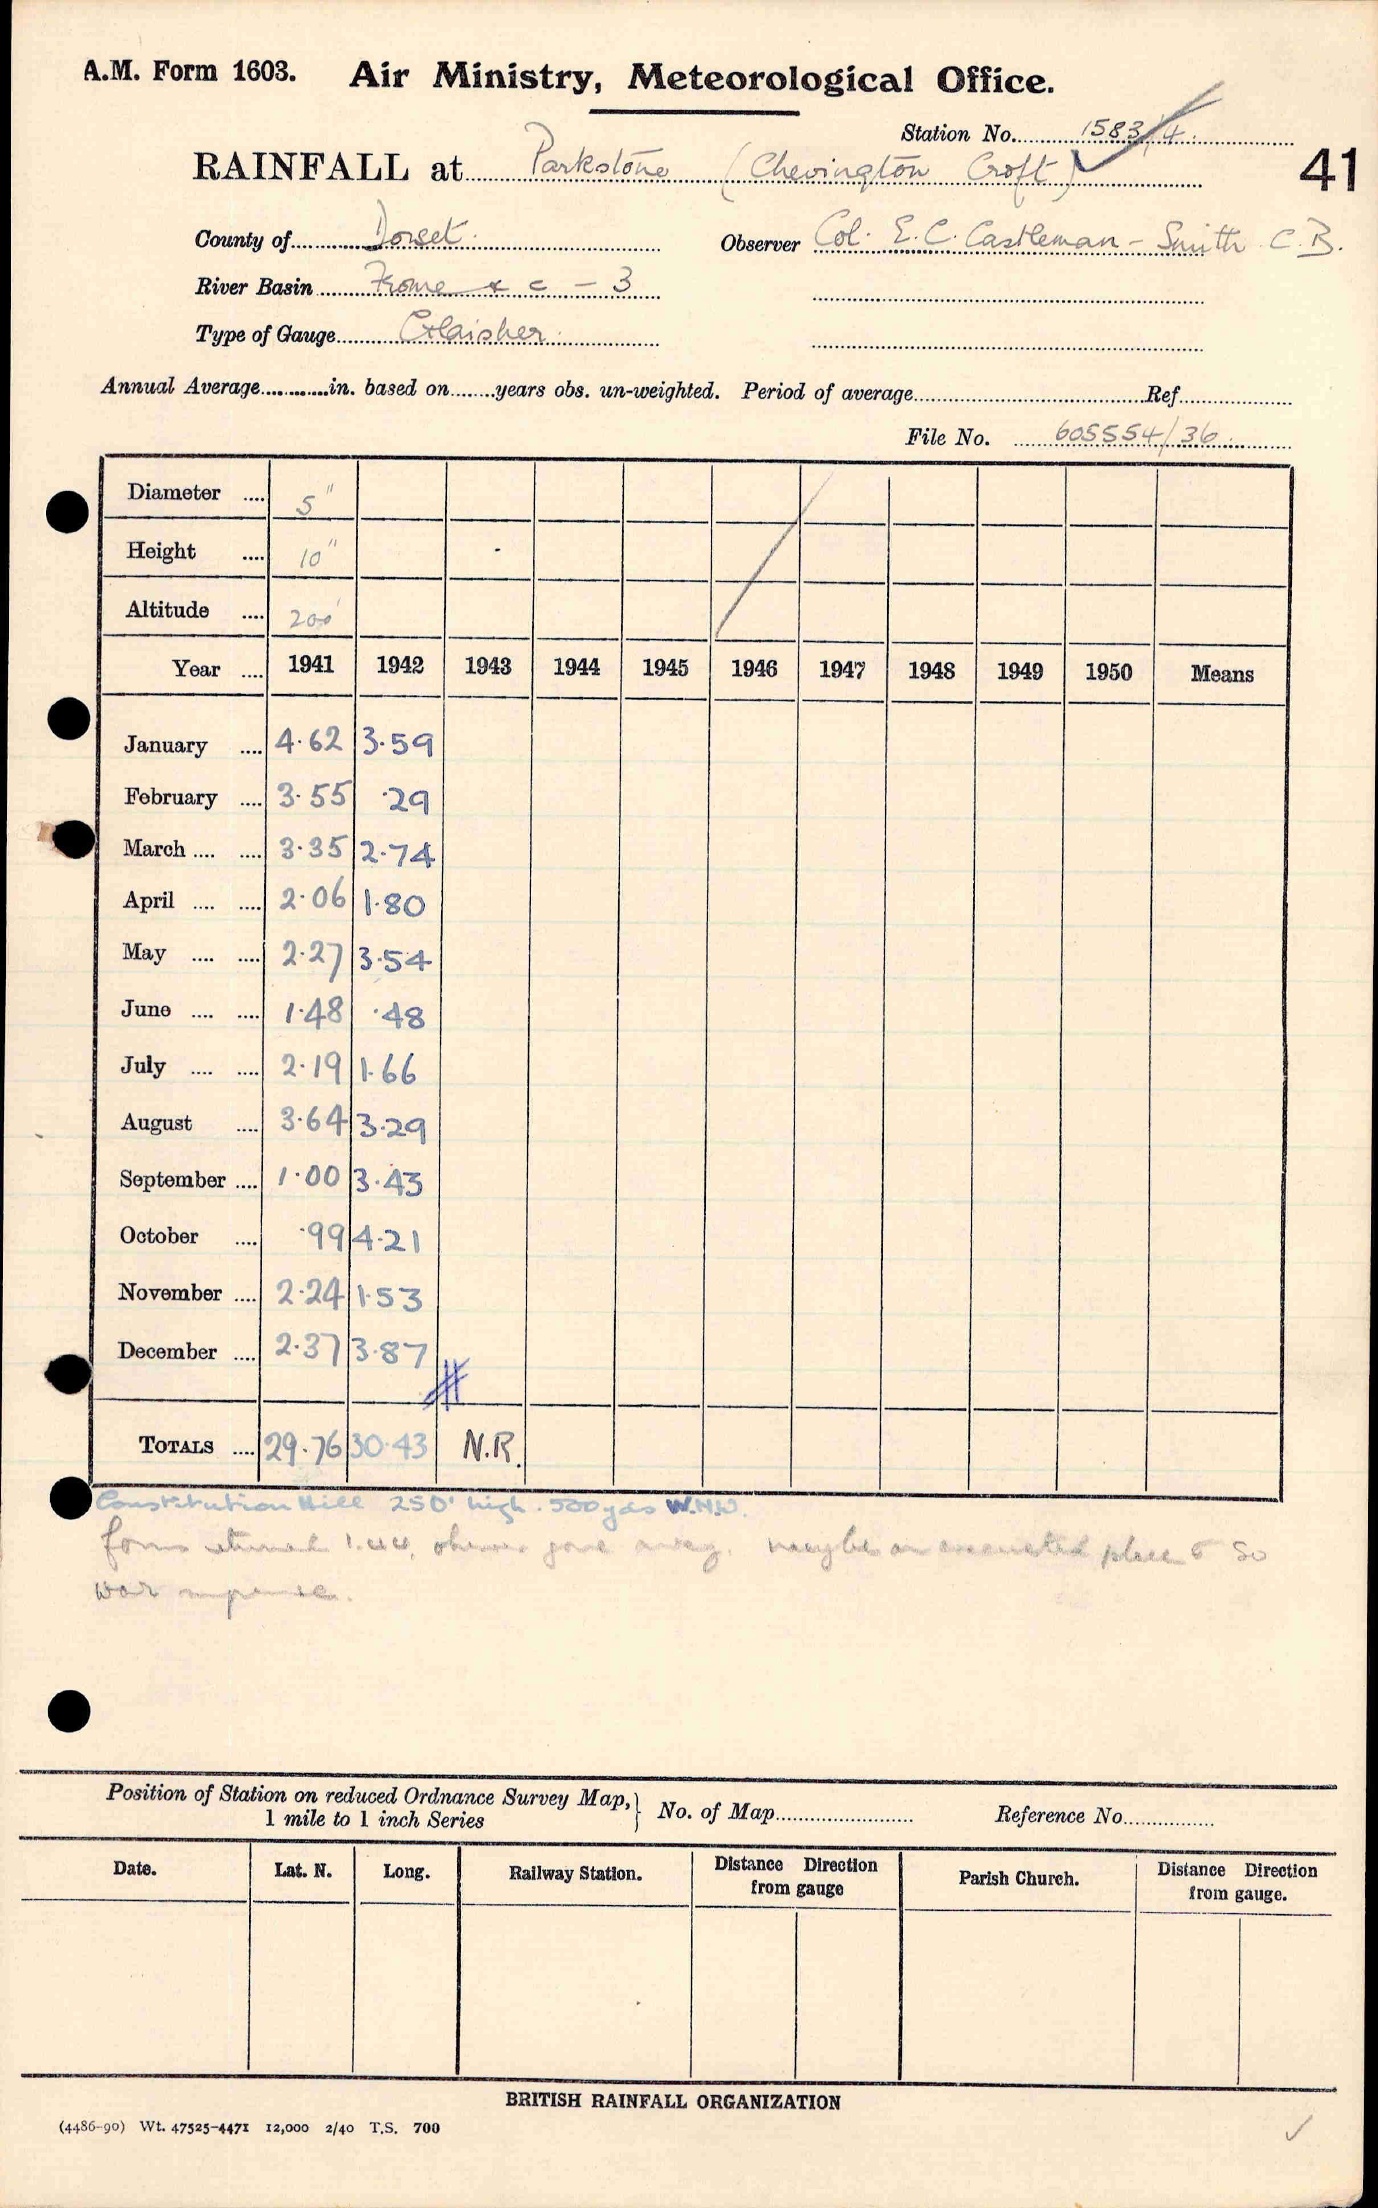 A.M. Form 1603. Air Ministry, Meteorological Office.
Station No. 1583/4
RAINFALL at Parkstone (Chevington Croft)
41
County of Dorset. Observer Col. E.C. Castleman-Smith C.B.
River Basin Frome & c - 3
Type of Gauge Glaisher.
Annual Average in. based on years obs. un-weighted. Period of average Ref
File No. 605554/36
Diameter 5"
Height 10"
Altitude 200'
Year 1941 1942 1943 1944 1945 1946 1947 1948 1949 1950 Means
January 4.62 3.59
February 3.55 .29
March 3.35 2.74
April 2.06 1.80
May 2.27 3.54
June 1.48 .48
July 2.19 1.66
August 3.64 3.29
September 1.00 3.43
October .99 4.21
November 2.24 1.53
December 2.37 3.87
TOTALS 29.76 30.43 N.R.
Constitution Hill 250' high. 500 yds W.N.W.
form returned 1.44, observer gone away. maybe an evacuated place & so
war
Position of Station on reduced Ordnance Survey Map, } No. of Map Reference No.
1 mile to 1 inch Series
Date. Lat. N. Long. Railway Station. Distance Direction from gauge Parish Church. Distance Direction from gauge.
BRITISH RAINFALL ORGANIZATION
(4486-90) Wt. 47525-4471 12,000 2/40 T.S. 700